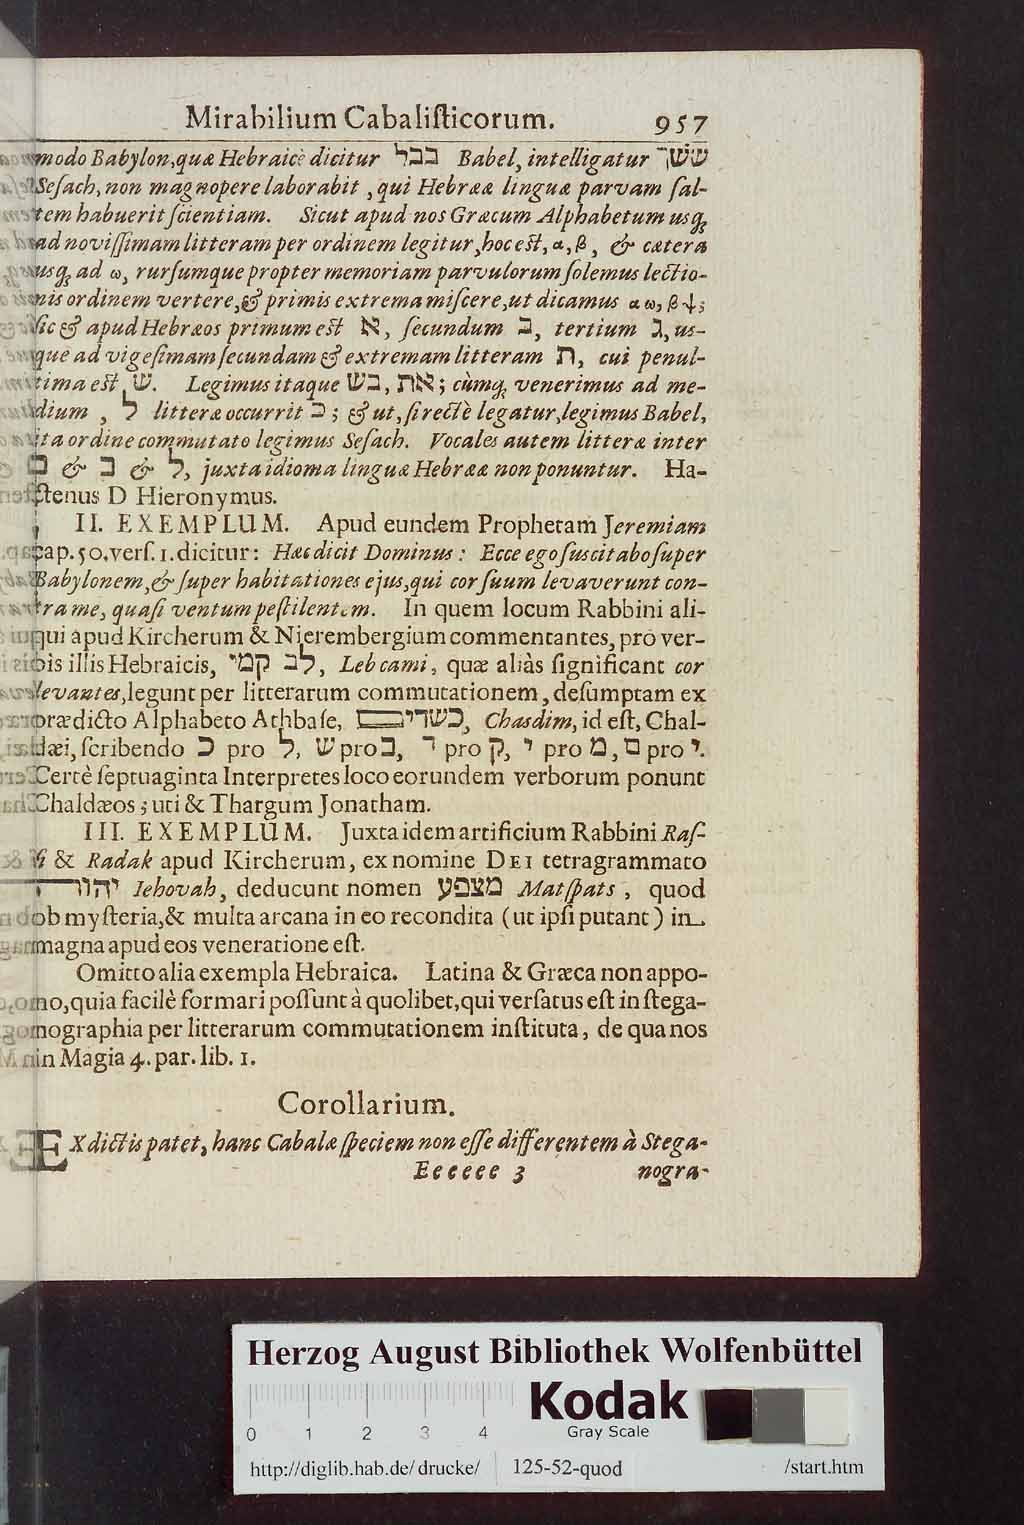 Mirabilium Cabaliſticorum. 957
modo Babylon, quæ Hebraicè dicitur בבל Babel, intelligatur ששך
Seſach, non magnopere laborabit, qui Hebrææ linguæ parvam ſal-
tem habuerit ſcientiam. Sicut apud nos Græcum Alphabetum usq;
ad noviſſimam litteram per ordinem legitur, hoc eſt, α, β, & cætera
usq; ad ω, rurſumque propter memoriam parvulorum ſolemus lectio-
nis ordinem vertere, & primis extrema miſcere, ut dicamus α ω, β ψ;
ſic & apud Hebræos primum eſt א, ſecundum ב, tertium ג, us-
que ad vigeſimam ſecundam & extremam litteram ת, cui penul-
tima eſt ש. Legimus itaque את, בש; cùmq; venerimus ad me-
dium, ל litteræ occurrit כ; & ut, ſi rectè legatur, legimus Babel,
ita ordine commutato legimus Seſach. Vocales autem litteræ inter
ב & ב & ל, juxta idioma linguæ Hebrææ non ponuntur. Ha-
ctenus D Hieronymus.
II. EXEMPLUM. Apud eundem Prophetam Jeremiam
cap. 50. verſ. 1. dicitur: Hæc dicit Dominus: Ecce ego ſuscitabo ſuper
Babylonem, & ſuper habitationes ejus, qui cor ſuum levaverunt con-
tra me, quaſi ventum peſtilentem. In quem locum Rabbini ali-
qui apud Kircherum & Nierembergium commentantes, pro ver-
bis illis Hebraicis, לב קמי, Leb cami, quæ aliàs ſignificant cor
levantes, legunt per litterarum commutationem, deſumptam ex
prædicto Alphabeto Athbaſe, כשדים, Chasdim, id eſt, Chal-
dæi, ſcribendo כ pro ל, ש pro ב, ד pro ק, י pro מ, ם pro י.
Certè ſeptuaginta Interpretes loco eorundem verborum ponunt
Chaldæos; uti & Thargum Jonatham.
III. EXEMPLUM. Juxta idem artificium Rabbini Raſ-
ſi & Radak apud Kircherum, ex nomine DEI tetragrammato
יהוה Iehovah, deducunt nomen מצפע Matſpats, quod
ob myſteria, & multa arcana in eo recondita (ut ipſi putant) in
magna apud eos veneratione eſt.
Omitto alia exempla Hebraica. Latina & Græca non appo-
no, quia facilè formari poſſunt à quolibet, qui verſatus eſt in ſtega-
nographia per litterarum commutationem inſtituta, de qua nos
in Magia 4. par. lib. 1.
Corollarium.
EX dictis patet, hanc Cabalæ ſpeciem non eſſe differentem à Stega-
Eeeeee 3 nogra-
Herzog August Bibliothek Wolfenbüttel
Kodak
Gray Scale
0 1 2 3 4
http://diglib.hab.de/drucke/ 125-52-quod /start.htm